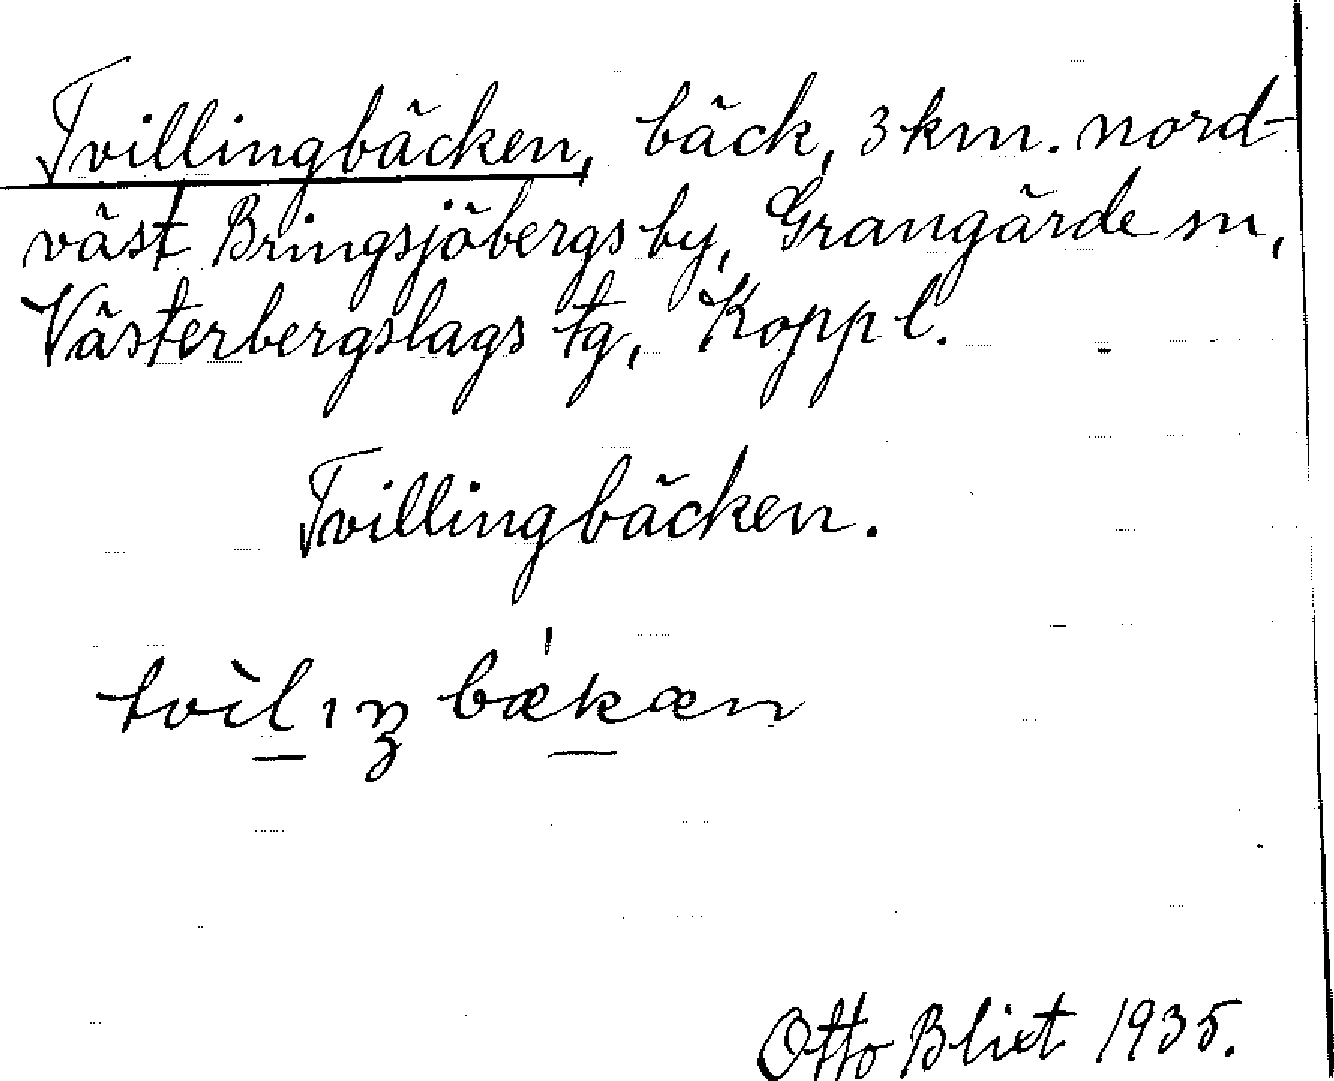 Tvillingbäcken, bäck, 3 km. nord-
väst Bringsjöbergs by, Grangärde sn,
Västerbergslags tg, Koppl.
Tvillingbäcken.
tvìlıŋbækæn
Otto Blixt 1935.